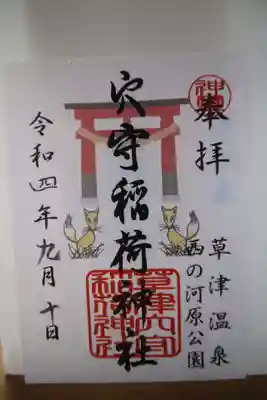 奉拝
草津温泉
西の河原公園
穴守稲荷神社
草津穴守稲荷神社
令和四年九月十日